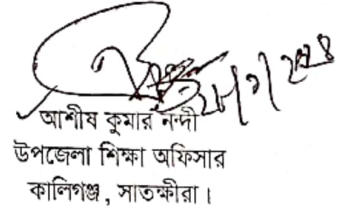 আশীষ কুমার নন্দী
উপজেলা শিক্ষা অফিসার
কালিগঞ্জ, সাতক্ষীরা।